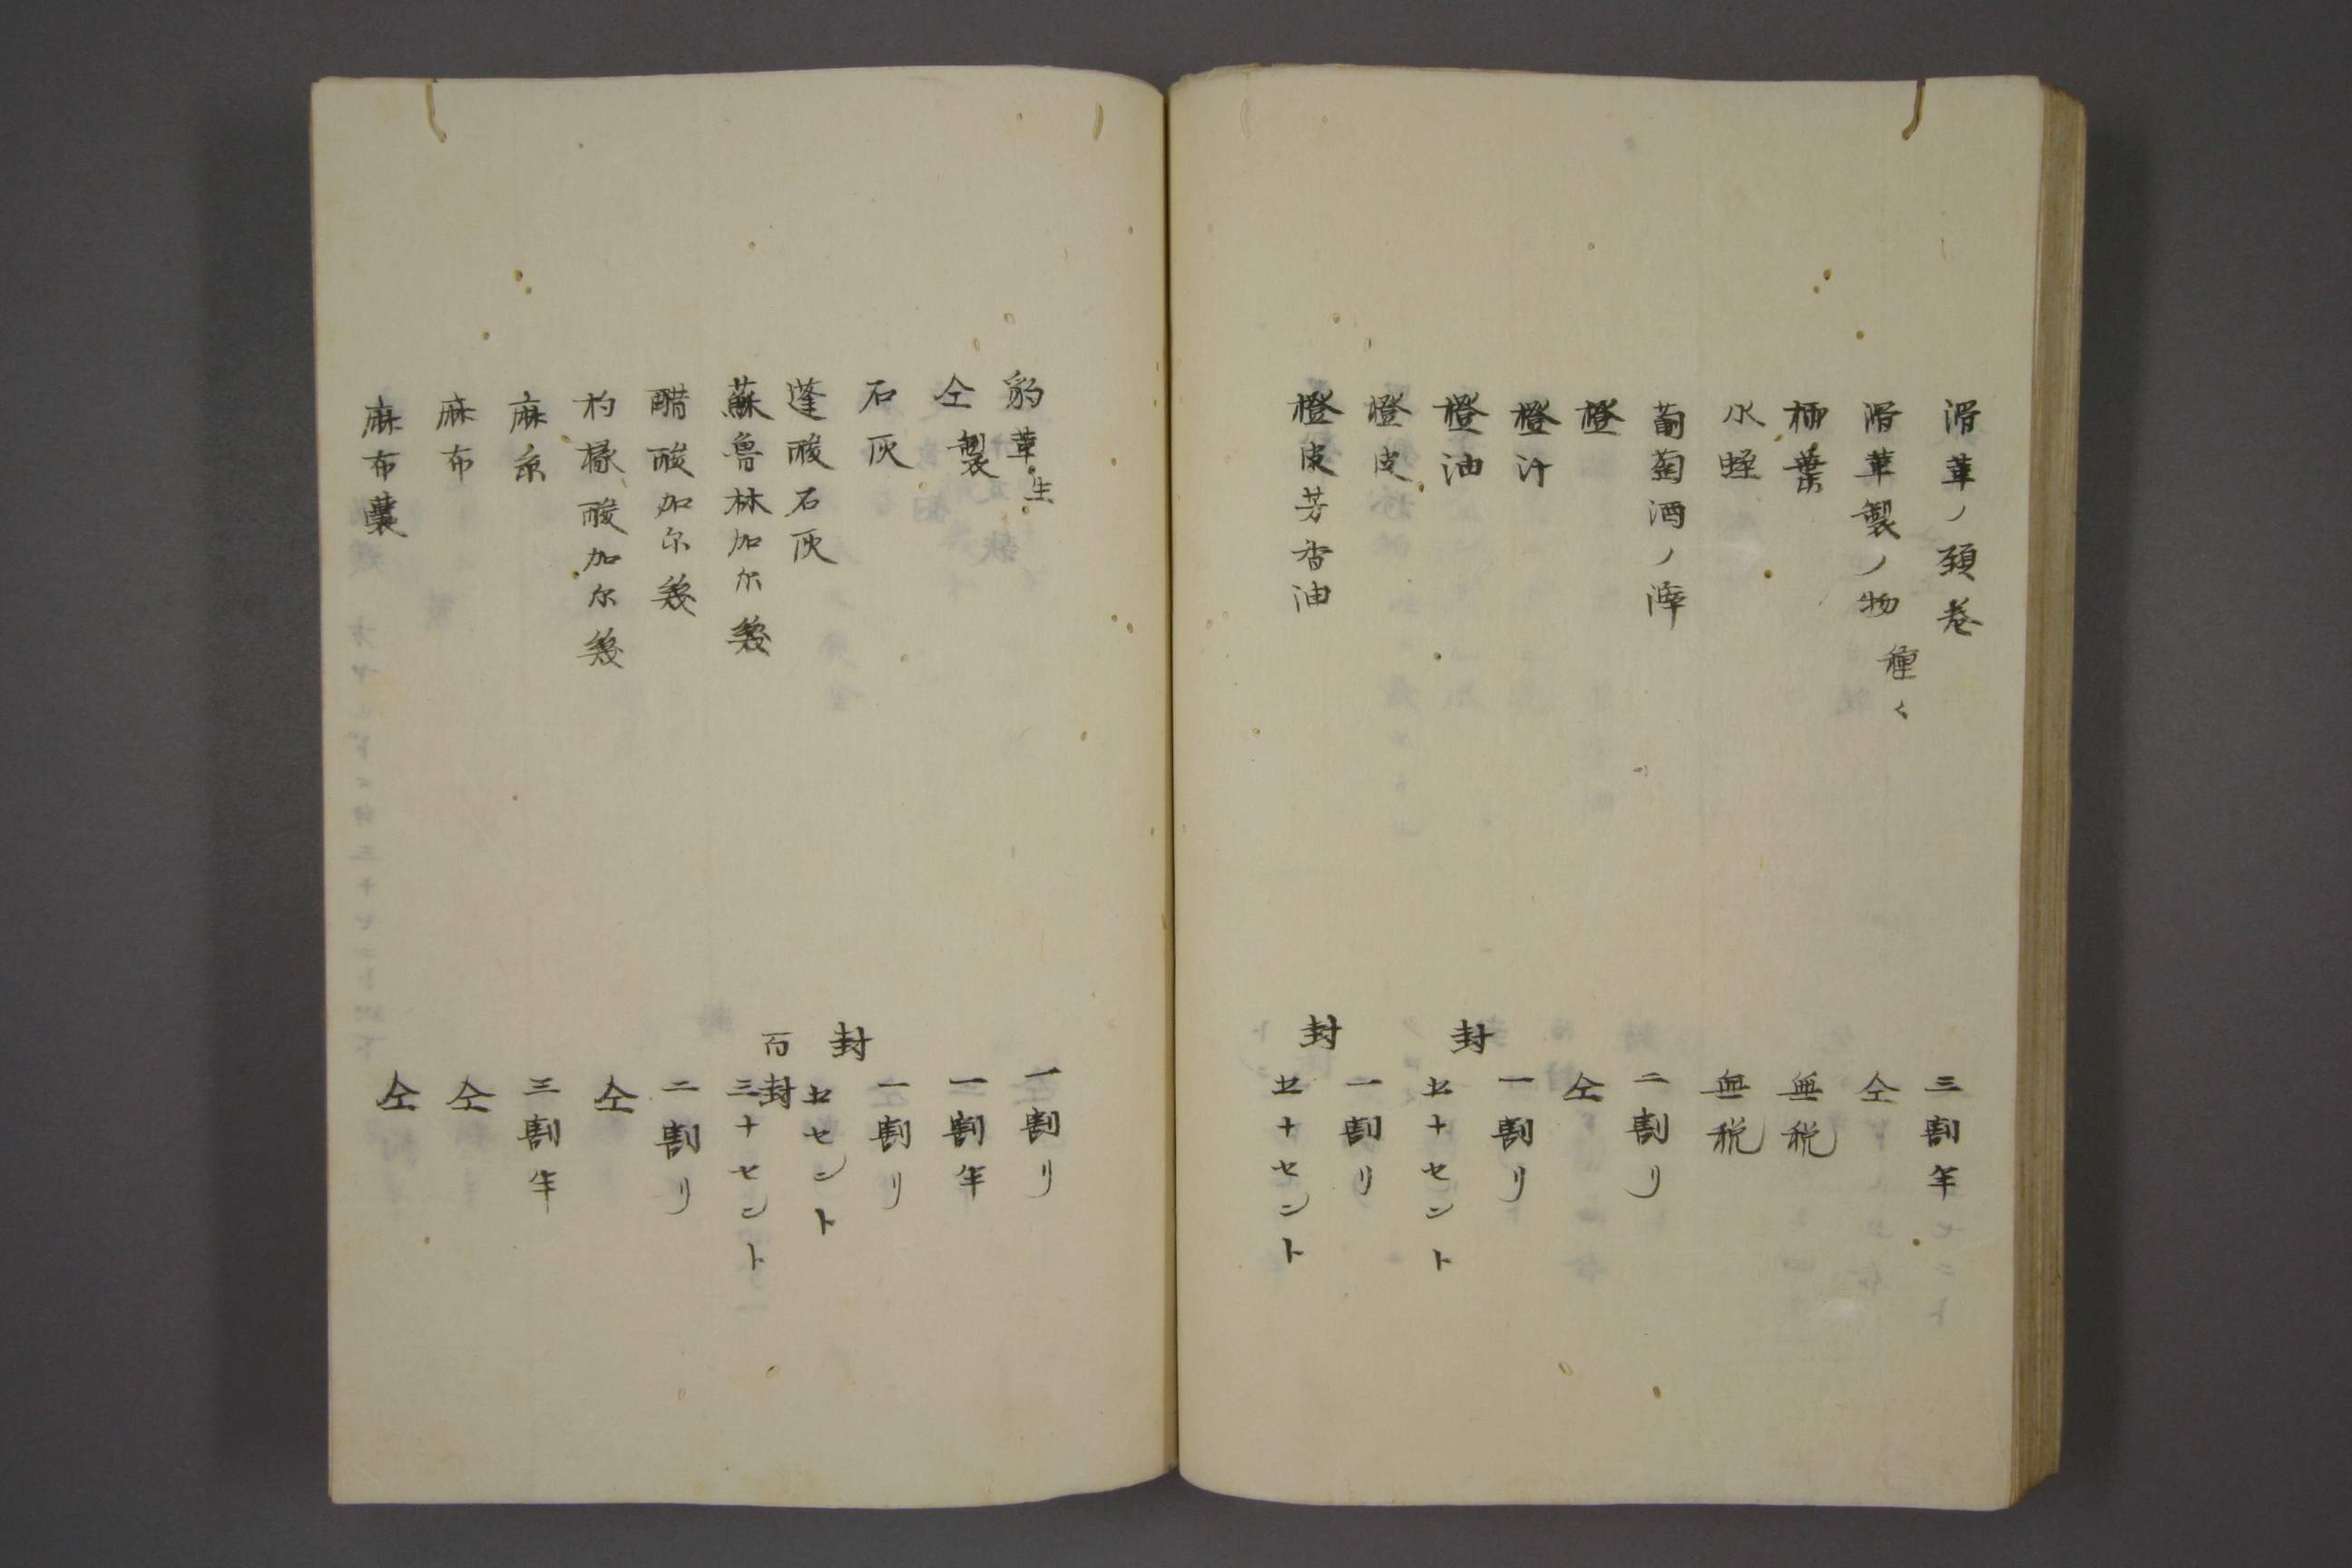 滑革ノ頸巻 三割半
滑革製ノ物 種々 仝
栭葉 無税
水蛭 無税
葡萄酒ノ滓 二割リ
橙 仝
橙汁 一割リ
橙油 封 五十セント
橙皮 一割リ
橙皮芳香油 封 五十セント
豹革 生 一割リ
仝製 一割半
石灰 一割リ
蓬酸石灰 封 五セント
蘇魯林加尓幾 百封 三十セント
醋酸加尓幾 二割リ
枸櫞酸加尓幾 仝
麻糸 三割半
麻布 仝
麻布嚢 仝